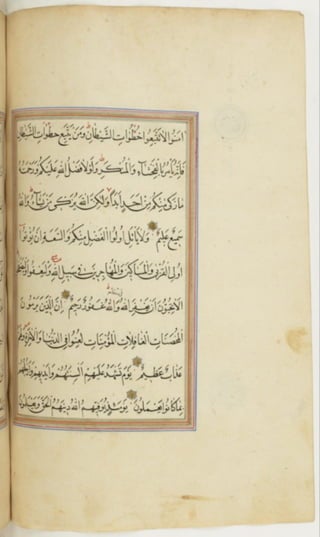 اٰمنوا لا تتبعوا خطوات الشيطان ومن يتبع خطوات الشيطان
فانه يأمر بالفحشاء والمنكر ولولا فضل الله عليكم ورحمته
ما زكى منكم من احد ابدا ولكن الله يزكي من يشاء والله
سميع عليم ولا يأتل اولوا الفضل منكم والسعة ان يؤتوا
اولي القربى والمساكين والمهاجرين في سبيل الله وليعفوا وليصفحوا
الا تحبون ان يغفر الله لكم والله غفور رحيم ان الذين يرمون
المحصنات الغافلات المؤمنات لعنوا في الدنيا والاخرة ولهم
عذاب عظيم يوم تشهد عليهم السنتهم وايديهم وارجلهم
بما كانوا يعملون يومئذ يوفيهم الله دينهم الحق ويعلمون